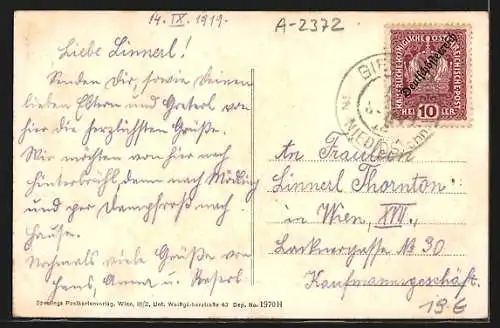 14. IX. 1919.
A-2372
Liebe Linnerl!
Senden Dir, sowie Deinen
lieben Eltern und Greterl von
hier die herzlichsten Grüße.
Wir möchten von hier nach
Hinterbrühl, dann nach Mödling
und per Dampfross nach
Hause.
Nochmals viele Grüße von
Hans, Anna u. Roserl
KAISERLICHE KÖNIGLICHE ÖSTERREICHISCHE POST
Deutschösterreich
HELLER 10
An Fräulein
Linnerl Thornton
in Wien, XVII.
Lacknergasse № 30
Kaufmannsgeschäft.
196
Postkartenverlag, Wien, III/2, Unt. Weißgärberstraße 43 Dep. No. 1970H